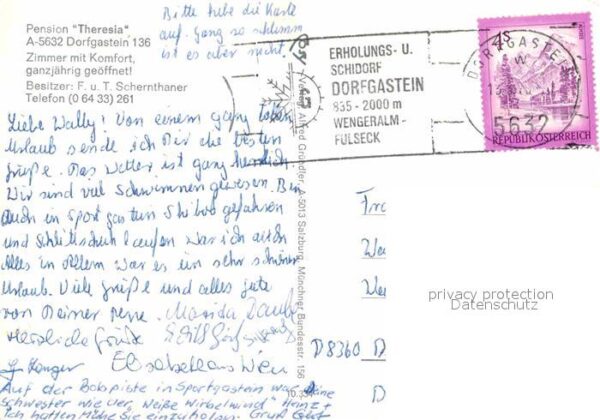 Pension "Theresia"
A-5632 Dorfgastein 136
Zimmer mit Komfort,
ganzjährig geöffnet!
Besitzer: F. u. T. Schernthaner
Telefon (0 64 33) 261
Bitte hebe die Karte
auf. Ganz so schlimm
ist es aber nicht.
ERHOLUNGS- U.
SCHIDORF
DORFGASTEIN
835-2000 m
WENGERALM-
FULSECK
DORFGASTEIN
5632
4S
REPUBLIK ÖSTERREICH
Verlag Alfred Gründler, A-5013 Salzburg, Münchner Bundesstr. 156
Liebe Wally! Von einem ganz tollen
Urlaub sende ich Dir die besten
Grüße. Das Wetter ist ganz herrlich.
Wir sind viel Schwimmen gewesen. Bin
auch in Sportgastein Skibob gefahren
und Schlittschuhlaufen war ich auch
Alles in Allem war es ein sehr schöner
Urlaub. Viele Grüße und alles gute
von Deiner
Herzliche Grüße
Elisabeth aus Wien
Auf der Bobpiste in Sportgastein war deine
Schwester wie der "weiße Wirbelwind" Heinz -
Ich hatten Mühe Sie einzuholen. Gruß
D8360 D
privacy protection
Datenschutz